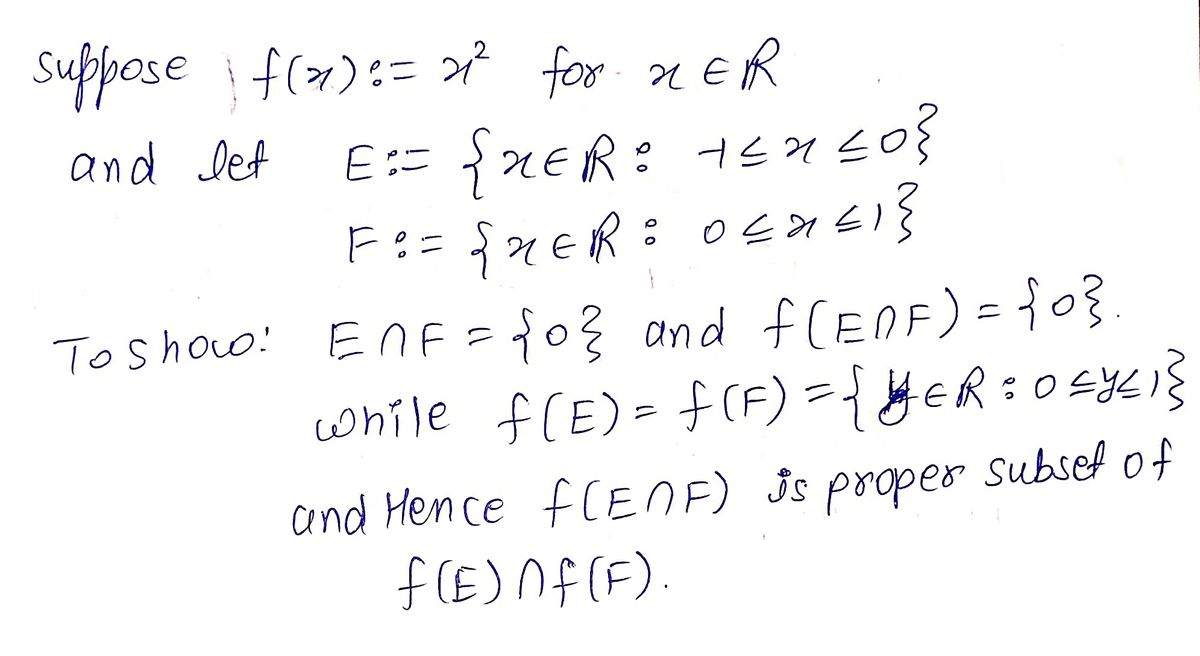 suppose f(x) := x² for x ∈ ℝ
and let E := {x ∈ ℝ : -1 ≤ x ≤ 0}
F := {x ∈ ℝ : 0 ≤ x ≤ 1}
To show: E ∩ F = {0} and f(E ∩ F) = {0}.
while f(E) = f(F) = {y ∈ ℝ : 0 ≤ y ≤ 1}
and Hence f(E ∩ F) is proper subset of
f(E) ∩ f(F).